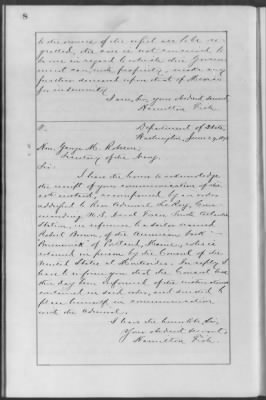 8
to the owners of the vessel are to be re-
gretted, the case is not conceived to
be one in regard to which this Govern-
ment can, with propriety, make any
further demand upon that of Mexico
for indemnity.
I am, Sir, your obedient servant,
Hamilton Fish.
Department of State,
Washington, June
Hon. George M. Robeson,
Secretary of the Navy.
Sir:
I have the honor to acknowledge
the receipt of your communication of the
instant, accompanied by an order
addressed to Rear Admiral Le Roy, Com-
manding U.S. Naval Force South Atlantic
Station, in reference to a sailor named
Robert Brown, of the American bark
"Brunswick" of Portland, Maine, who is
retained in prison by the Consul of the
United States at Montevideo. In reply I
have to inform you that the Consul has
this day been informed of the instructions
contained in said order, and directed to
place himself in communication
with the Admiral.
I have the honor to be, Sir,
Your obedient servant,
Hamilton Fish.